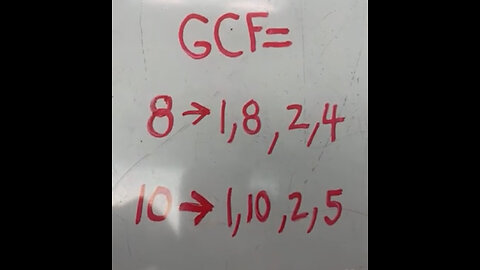 GCF=
8→1,8,2,4
10→1,10,2,5